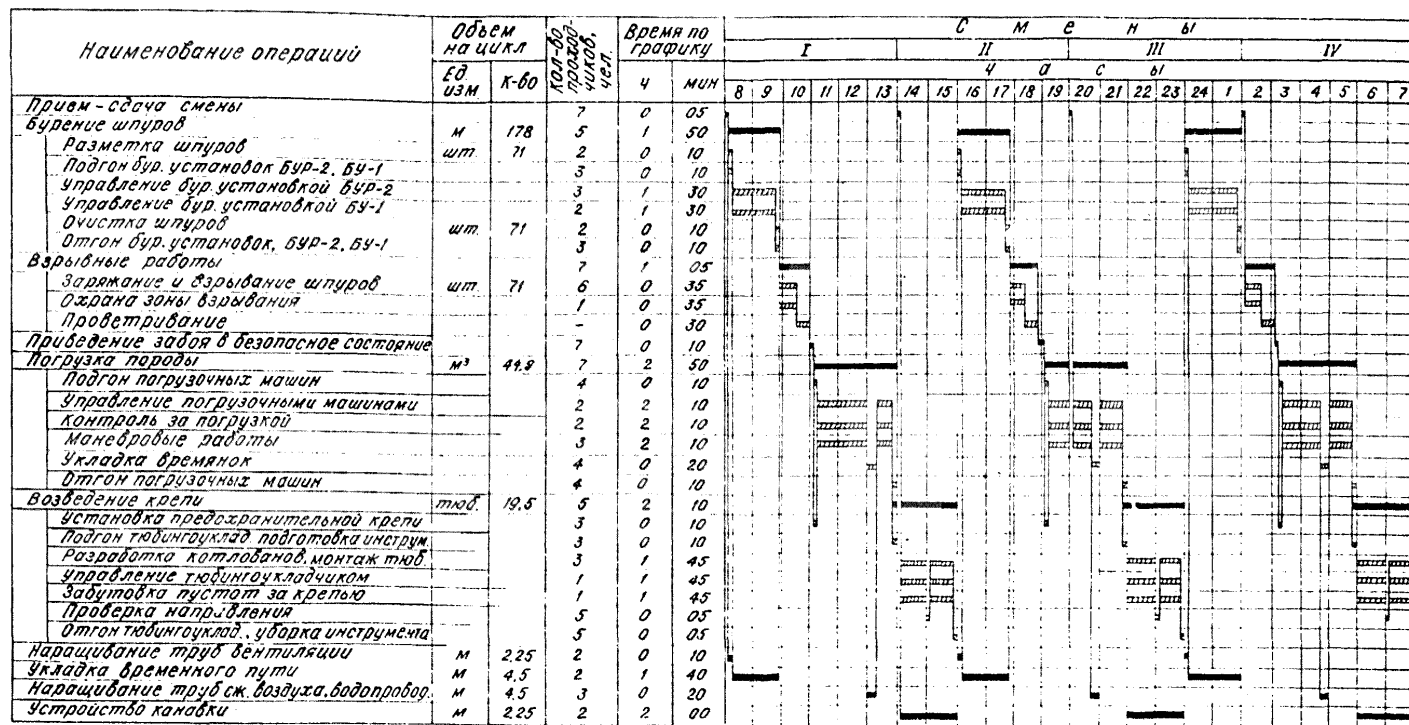 Наименование операций Объем на цикл Кол-во проходчиков, чел. Время по графику Смены
I II III IV
Ед. изм К-во ч мин Часы
8 9 10 11 12 13 14 15 16 17 18 19 20 21 22 23 24 1 2 3 4 5 6 7
Прием-сдача смены 7 0 05
Бурение шпуров м 178 5 1 50
Разметка шпуров шт. 71 2 0 10
Подгон бур. установок БУР-2, БУ-1 3 0 10
Управление бур. установкой БУР-2 3 1 30
Управление бур. установкой БУ-1 2 1 30
Очистка шпуров шт. 71 2 0 10
Отгон бур. установок, БУР-2, БУ-1 3 0 10
Взрывные работы 7 1 05
Заряжание и взрывание шпуров шт. 71 6 0 35
Охрана зоны взрывания 1 0 35
Проветривание - 0 30
Приведение забоя в безопасное состояние 7 0 10
Погрузка породы м³ 44.8 7 2 50
Подгон погрузочных машин 4 0 10
Управление погрузочными машинами 2 2 10
Контроль за погрузкой 2 2 10
Маневровые работы 3 2 10
Укладка времянок 4 0 20
Отгон погрузочных машин 4 0 10
Возведение крепи тюб. 19,5 5 2 10
Установка предохранительной крепи 3 0 10
Подгон тюбингоуклад. подготовка инструм. 3 0 10
Разработка котлованов, монтаж тюб. 3 1 45
Управление тюбингоукладчиком 1 1 45
Забутовка пустот за крепью 1 1 45
Проверка направления 5 0 05
Отгон тюбингоуклад., уборка инструмента 5 0 05
Наращивание труб вентиляции м 2,25 2 0 10
Укладка временного пути м 4.5 2 1 40
Наращивание труб сж. воздуха, водопровод. м 4.5 3 0 20
Устройство канавки м 2,25 2 2 00